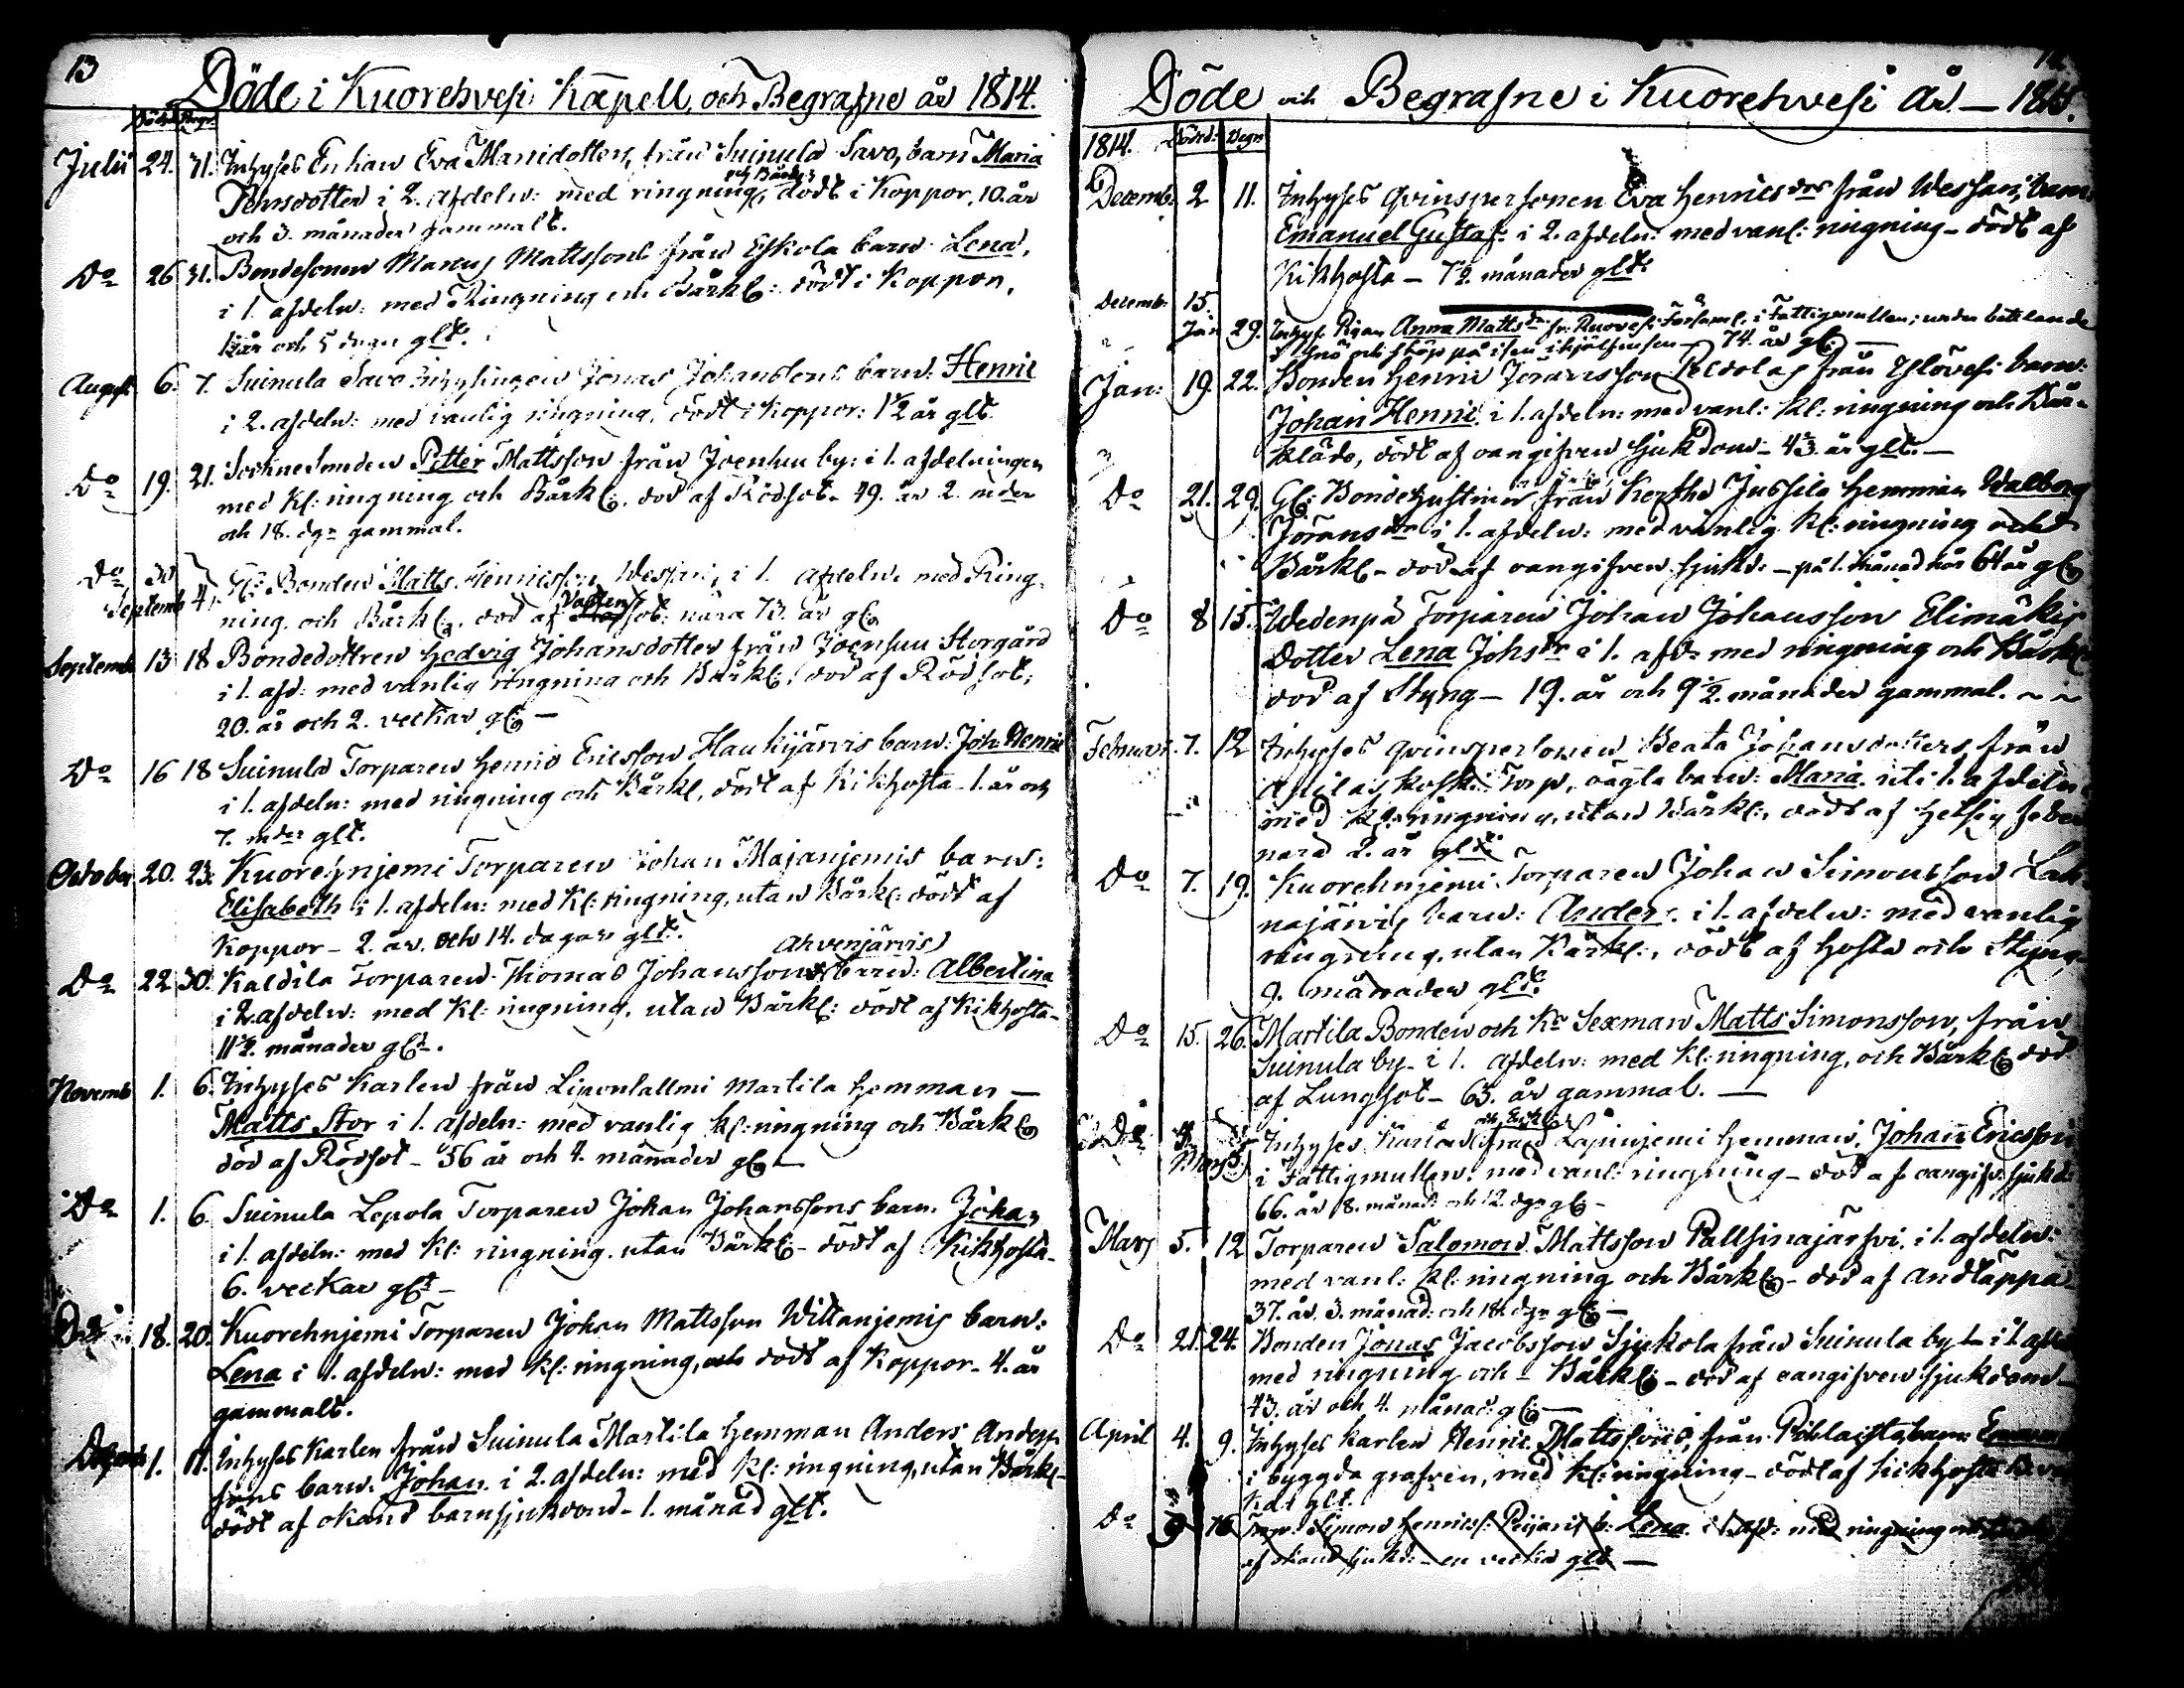 13
Döde i Kuorehvesi Kapell, och Begrafne år 1814.
Döde Begr.
Julii 24. 31. Inhyses Enkan Eva Mansdotters, från Suinula Savo, barn Maria
och Bårkl:
Pehrsdotter i 2. afdeln: med ringning, dödt i Koppor, 10. år
och 3. månader gammalt.
Do 26 31. Bondesonen Marcus Mattssons från Eskola barn: Lena,
i 1. afdeln: med Ringning och Bårkl: dödt i Koppor,
år och 5 dagar glt.
August 6. 7. Suinula Savo Inhysingen Jonas Johanssons barn: Henric
i 2. afdeln: med vanlig ringning, dödt i Koppor: 1½ år glt.
Do 19. 21. Sockne Petter Mattsson från Joensuu by: i 1. afdelningen
med Kl: ringning och Bårkl: död af Rödsot. 49. år 2. mder
och 18. dgr gammal.
Do 30
Septemb 4. Gl: Bonden Matts Henricsson Wessari, i 1. afdeln. med Ring-
Vatten
ning och Bårkl:, död af sot: nära 73. år gl:
Septemb 13 18 Bondedottren Hedvig Johansdotter från Joensuu Storgård
i 1. afd: med vanlig ringning och Bårkl: död af Rödsot,
20. år och 2. veckor gl: —
Do 16 18 Suinula Torparen Henric Ericsson Haukijärvis barn: Joh. Henric
i 1. afdeln: med ringning och Bårkl, dödt af Kikhosta - 1. år och
7. mder glt.
October 20. 23. Kuorehnjemi Torparen Johan Majanjemis barn:
Elisabeth i 1. afdeln: med Kl: ringning, utan Bårkl: dödt af
Koppor - 2. år. och 14. dagar glt.
Ahvenjärvis)
Do 22 30. Kaldila Torparen Thomas Johanssons barn: Albertina
i 2. afdeln: med Kl: ringning, utan Bårkl: dödt af Kikhosta -
11½. månader glt.
Novemb 1. 6. Inhyses Karlen från Liponsallmi Martila hemman —
Matts Stor i 1. afdeln: med vanlig kl: ringning och Bårkl:
död af Rödsot - 56 år och 4. månader gl: —
Do 1. 6. Suinula Lepola Torparen Johan Johanssons barn. Johan
i 1. afdeln: med Kl: ringning. utan Bårkl: - dödt af Kikhosta -
6. veckor glt -
Do 18. 20. Kuorehnjemi Torparen Johan Mattsson Wittanjemis barn:
Lena i 1. afdeln: med Kl: ringning, och dödt af Koppor - 4. år
gammalt.
Decemb 1. 11. Inhyses Karlen från Suinula Martila hemman Anders Anders-
sons barn. Johan i 2. afdeln: med Kl: ringning, utan Bårkl -
dödt af okänd barnsjukdom - 1. månad glt.
Döde och Begrafne i Kuorehvesi År — 1815.
1814. Död: Begr:
Decemb. 2 11. Inhyses Qvinspersonen Eva Henricsdrs från Wessari, barn:
Emanuel Gustaf: i 2. afdeln: med vanl: ringning - dödt af
Kikhosta — 7½. månader glt.
Decemb. 15.
Jan 29. Inhys. Pigan Anna Mattsdr fr. Ruovesi Församl. i Fattigmullen; under betlande
i snö och på isen ihjälfrusen - 74. år gl: —
Jan: 19. 22. Bonden Henric Joransson från Ylövesi barn:
Johan Henric i 1. afdeln: med vanl: kl: ringning och Bår-
kläde, dödt af oangifven sjukdom - 4⅔. år glt. —
Do 21. 29. Gl: Bondehustrun från Jussila hemman Walborg
Joransdr i 1. afdeln: med vanlig Kl: ringning och
Bårkl - död af oangifven sjukd: - på 1. månad när 64 år gl:
Do 8 15. Wedenpä Torparen Johan Johansson Elimäkis
Dotter Lena Johsdr i 1. afd: med ringning och Bårkl:
död af Styng — 19. år och 9½. månader gammal.
Februari 7. 12 Inhyses Qvinspersonen Beata Johansdotters, från
Torp, oägta barn: Maria. uti 1. afdeln
med kl: ringning, utan Bårkl:, dödt af hetsig feber
nära 2. år glt.
Do 7. 19. Kuorehnjemi Torparen Johan Simonsson Lah-
najärvis barn: Anders. i 1. afdeln: med vanlig
ringning, utan Bårkl:, dödt af hosta och Styng
9. månader glt.
Do 15. 26. Martila Bonden och Kr Sexman Matts Simonsson, från
Suinula by - i 1. afdeln: med kl: ringning, och Bårkl: död
af Lungsot - 63. år gammal. —
Mars Inhyses Karlen från Lapinjemi hemman, Johan Ericsson
i Fattigmullen. med vanl: ringning - död af oangifv: sjukd:
66. år 8. månad: och 12. dgr gl: -
Mars 5. 12 Torparen Salomon Mattsson Pallsinajärfvi, i 1. afdeln:
med vanl: kl: ringning och Bårkl: - död af andtäppa
37. år. 3. månad: och 18. dgr gl: —
Do 21. 24. Bonden Jonas Jacobsson Sjukola från Suinula by - i 1. afd
med ringning och - Bårkl: - död af oangifven sjukdom -
43. år och 4. månad: gl: —
April 4. 9. Inhyses karlen Henric Mattssons, från barn:
i byggda grafven, med kl: ringning - dödt af kikhosta
glt.
Do 9 16 Torp: Simon Henricss: b: Lena i 1. afd: med ringning
af okänd sjukd: - en vecka glt —